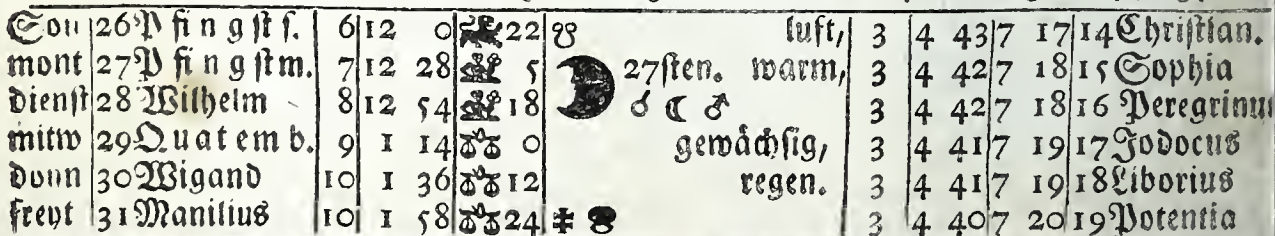 Son 26 Pfingsts. 6 12 0 22 ☋ luft, 3 4 43 7 17 14 Christian.
mont 27 Pfingstm. 7 12 28 5 27sten. warm, 3 4 42 7 18 15 Sophia
dienst 28 Wilhelm 8 12 54 18 ☌ ☾ ♂ 3 4 42 7 18 16 Peregrinus
mitw 29 Quatemb. 9 1 14 0 gewächsig, 3 4 41 7 19 17 Jodocus
donn 30 Wigand 10 1 36 12 regen. 3 4 41 7 19 18 Liborius
freyt 31 Manilius 10 1 58 24 3 4 40 7 20 19 Potentia